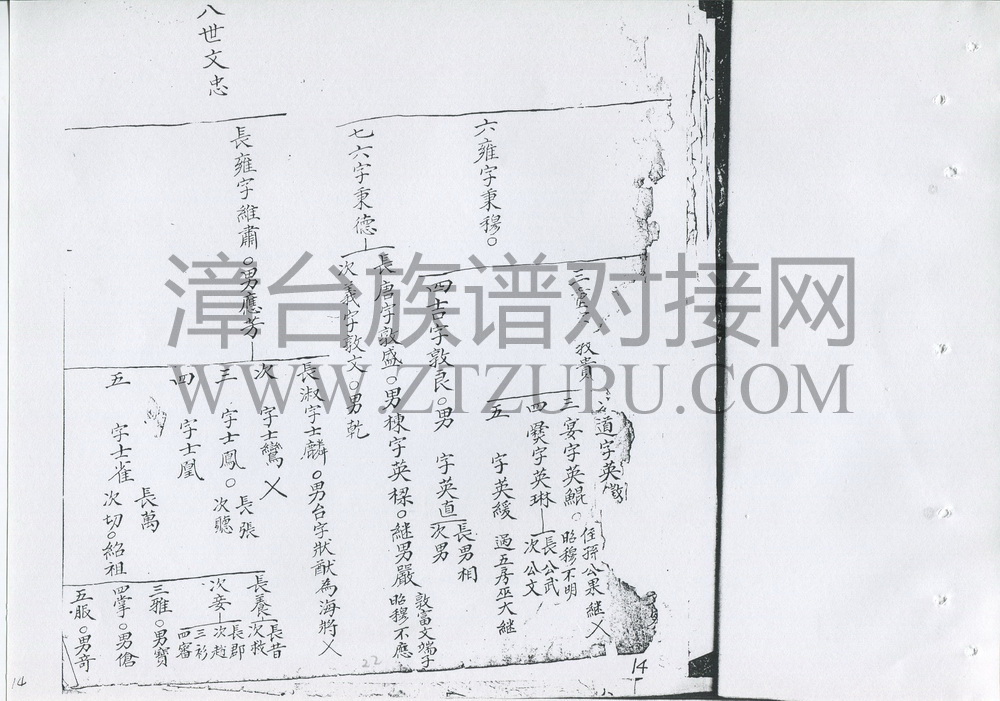 六雍字秉穆。
三
叔貴
道字英
侄孫公果継乂
三宴字英鯤。昭穆不明
四爂字英琳
長公武
次公文
五 字英緩 過五房巫大継
四吉字敦良。男 字英直
長男相
次男
七六字秉德
長唐字敦盛。男棟字英樑。継男嚴 敦富文端子 昭穆不應
次義字敦文。男乾
八世文忠
長雍字維肅。男應芳
長淑字士麟。男台字狀猷為海將乂
次 字士鸞乂
三 字士鳳。
長張
次聽
四 字士凰
五 字士雀
長萬
次切。紹祖
長養
長昔
次救
次妾
長郡
次趙
三衫
四審
三雅。男寶
四掌。男傖
五服。男奇
14
22
14
漳台族谱对接网
WWW.ZTZUPU.COM